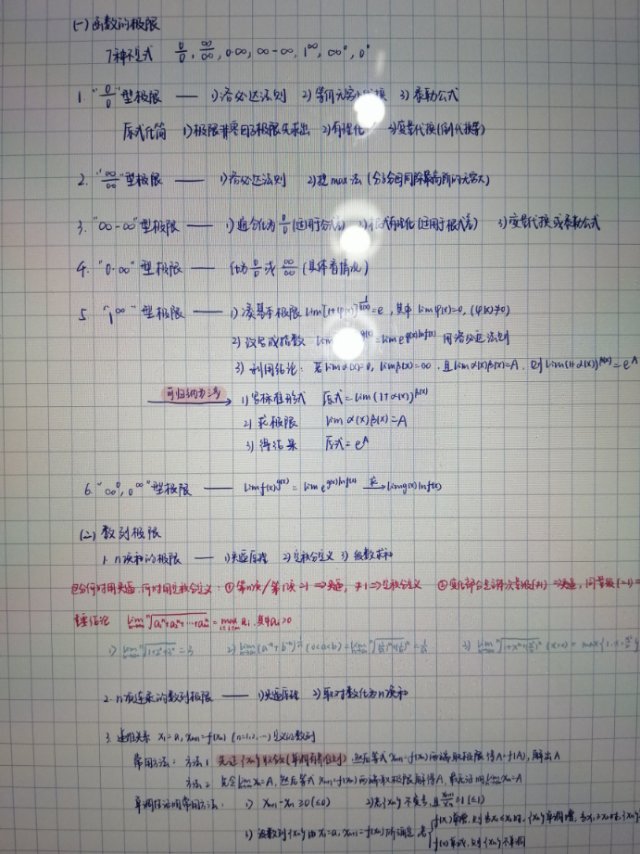 (一) 函数的极限
7种不定式 0/0, ∞/∞, 0·∞, ∞-∞, 1^∞, ∞^0, 0^0
1. "0/0"型极限 —— 1) 洛必达法则 2) 等价无穷小 3) 泰勒公式
原式化简 1) 极限非零因子极限先求出 2) 有理化 3) 变量代换(倒代换等)
2. "∞/∞"型极限 —— 1) 洛必达法则 2) 提max法(分子分母同除最高阶的无穷大)
3. "∞-∞"型极限 —— 1) 通分化为0/0(适用于分式) 有理化(适用于根式差) 3) 变量代换或泰勒公式
4. "0·∞"型极限 —— 化为0/0或∞/∞(具体看情况)
5. "1^∞"型极限 —— 1) 凑基本极限 lim[1+φ(x)]^(1/φ(x))=e, 其中 limφ(x)=0, (φ(x)≠0)
2) 改写成指数 =lim e^(g(x)lnf(x)) 用洛必达法则
3) 利用结论: 若limα(x)=0, limβ(x)=∞, 且limα(x)β(x)=A, 则lim(1+α(x))^β(x)=e^A
可归纳为三步
1) 写标准形式 原式=lim(1+α(x))^β(x)
2) 求极限 limα(x)β(x)=A
3) 得结果 原式=e^A
6. 型极限 —— limf(x)^g(x) = lim e^(g(x)lnf(x)) limg(x)lnf(x)
(二) 数列极限
1. n项和的极限 —— 1) 夹逼原理 2) 定积分定义 3) 级数求和
何时用夹逼, 何时用定积分定义: ① 第n项/第1项→1 ⇒夹逼, ≠1⇒定积分定义 ②
重要结论 lim ⁿ√(a₁ⁿ+a₂ⁿ+…+aₘⁿ) = max aᵢ, 其中aᵢ>0
1) =3 2) lim(a⁻ⁿ+b⁻ⁿ)^(1/n) (0<a<b) =1/a 3)
2. n项连乘的数列极限 —— 1) 夹逼原理 2) 取对数化为n项和
3. 递推关系 x₁=a, xₙ₊₁=f(xₙ) (n=1,2,…) 定义的数列
常用方法: 方法1 先证{xₙ}收敛(单调有界准则), 然后等式xₙ₊₁=f(xₙ)两端取极限得A=f(A), 解出A
方法2 先令lim xₙ=A, 然后等式xₙ₊₁=f(xₙ)两端取极限解得A, 最后证明lim xₙ=A
单调性证明常用方法: 1) xₙ₊₁-xₙ≥0(≤0) 2) 若{xₙ}不变号, 且xₙ₊₁/xₙ≥1(≤1)
3) 设数列{xₙ}由x₁=a, xₙ₊₁=f(xₙ)所确定, 若
f(x)单增, 则 当x₁≤x₂时, {xₙ}单调增, 当x₁≥x₂时, {xₙ}
f(x)单减, 则{xₙ}不单调